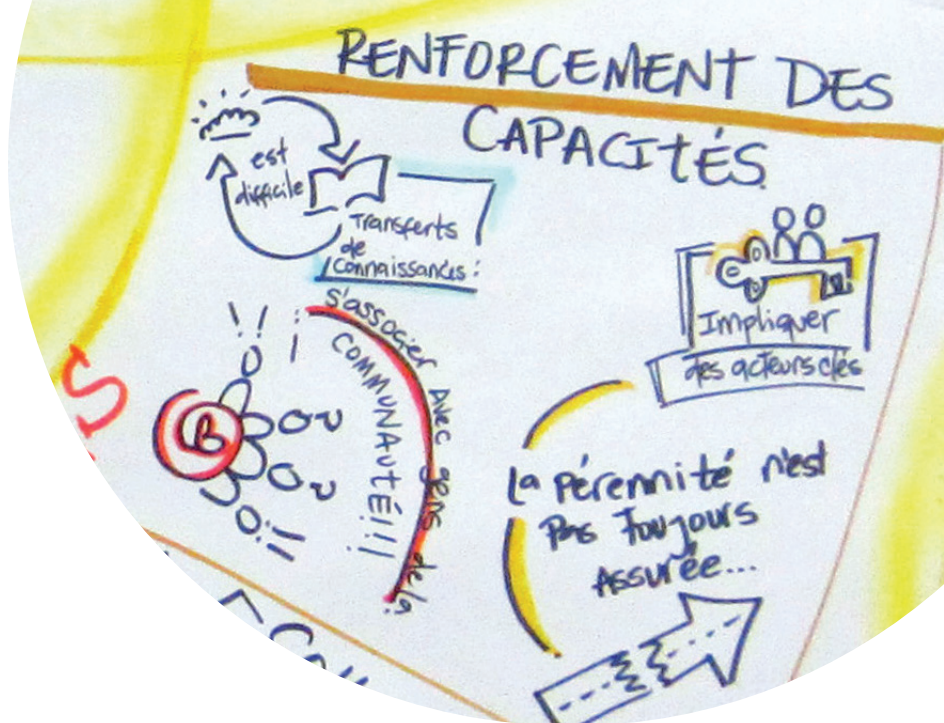 RENFORCEMENT DES
CAPACITÉS
est
difficile
Transferts
de
connaissances:
s'associer avec gens de la
COMMUNAUTÉ!!!
B
Impliquer
des acteurs clés
La pérennité n'est
pas toujours
assurée...
S